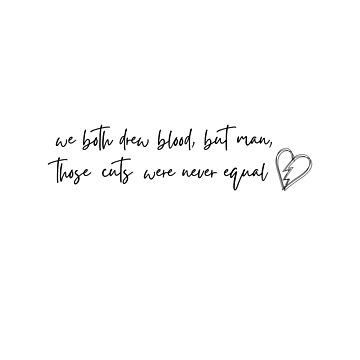 we both drew blood, but man,
those cuts were never equal